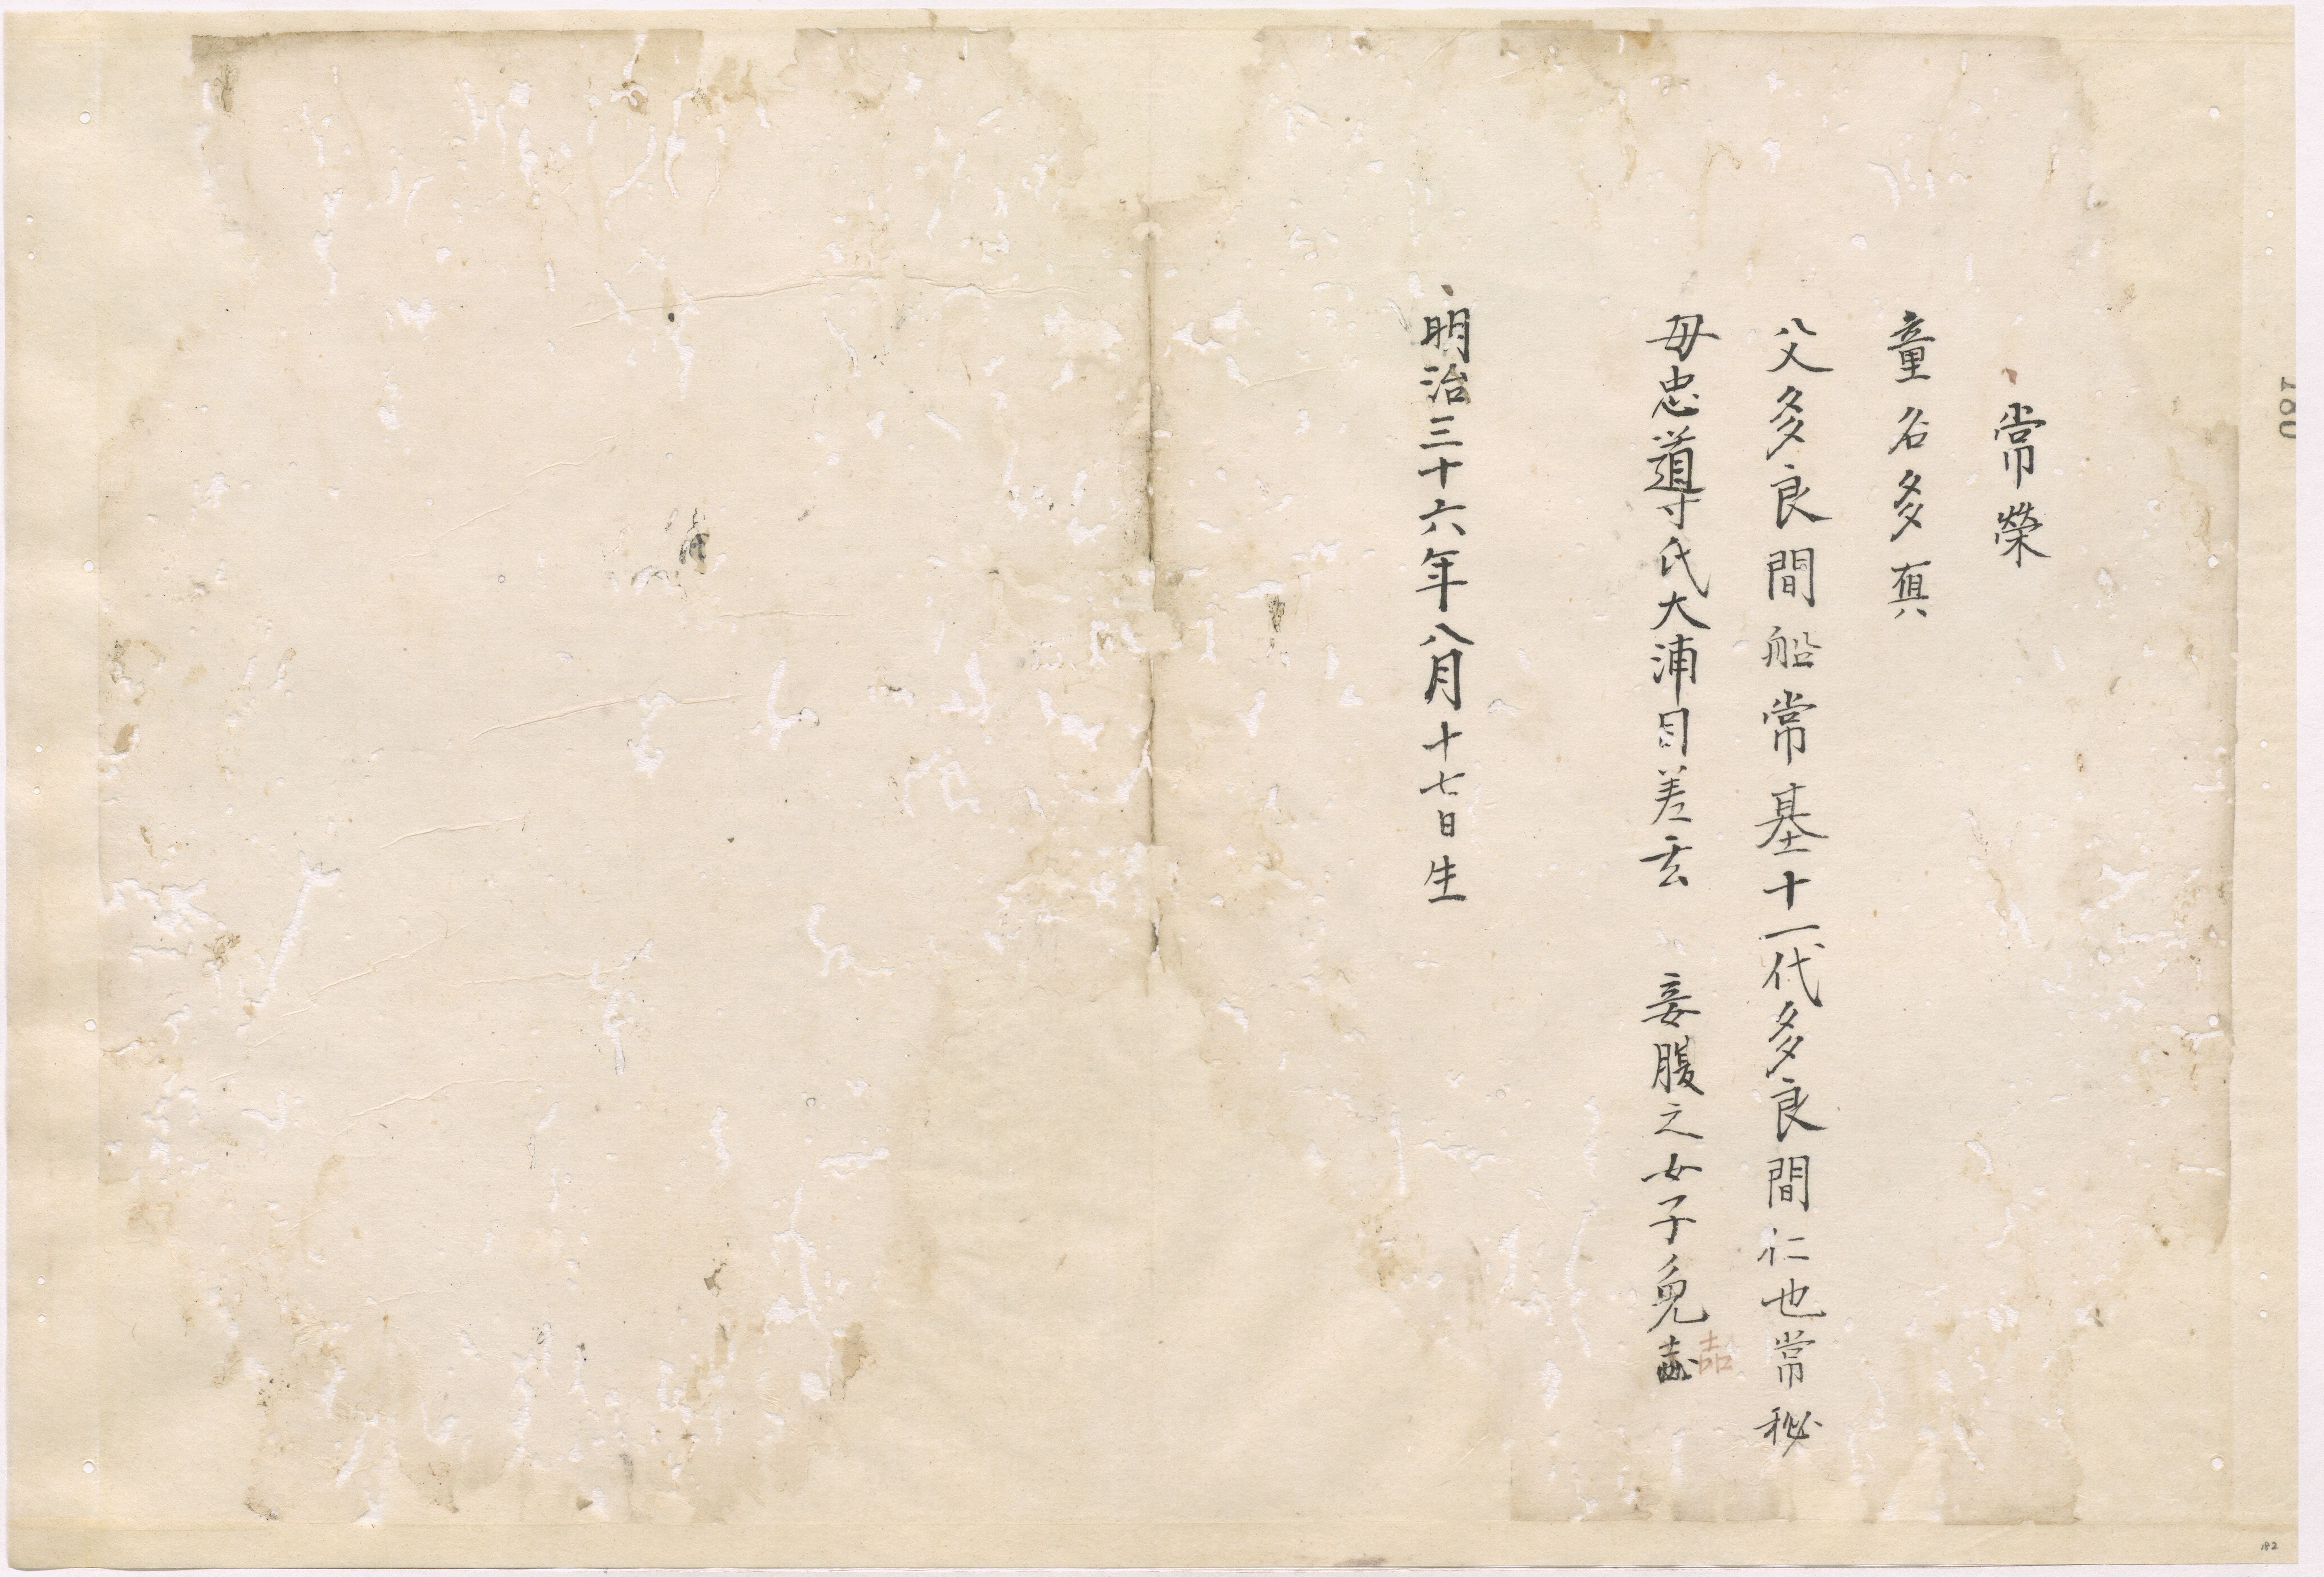 常榮
童名多真
父多良間船常基十一代多良間仁也常秘
母忠導氏大浦目差玄 妾腹之女子免嘉
明治三十六年八月十七日生
182